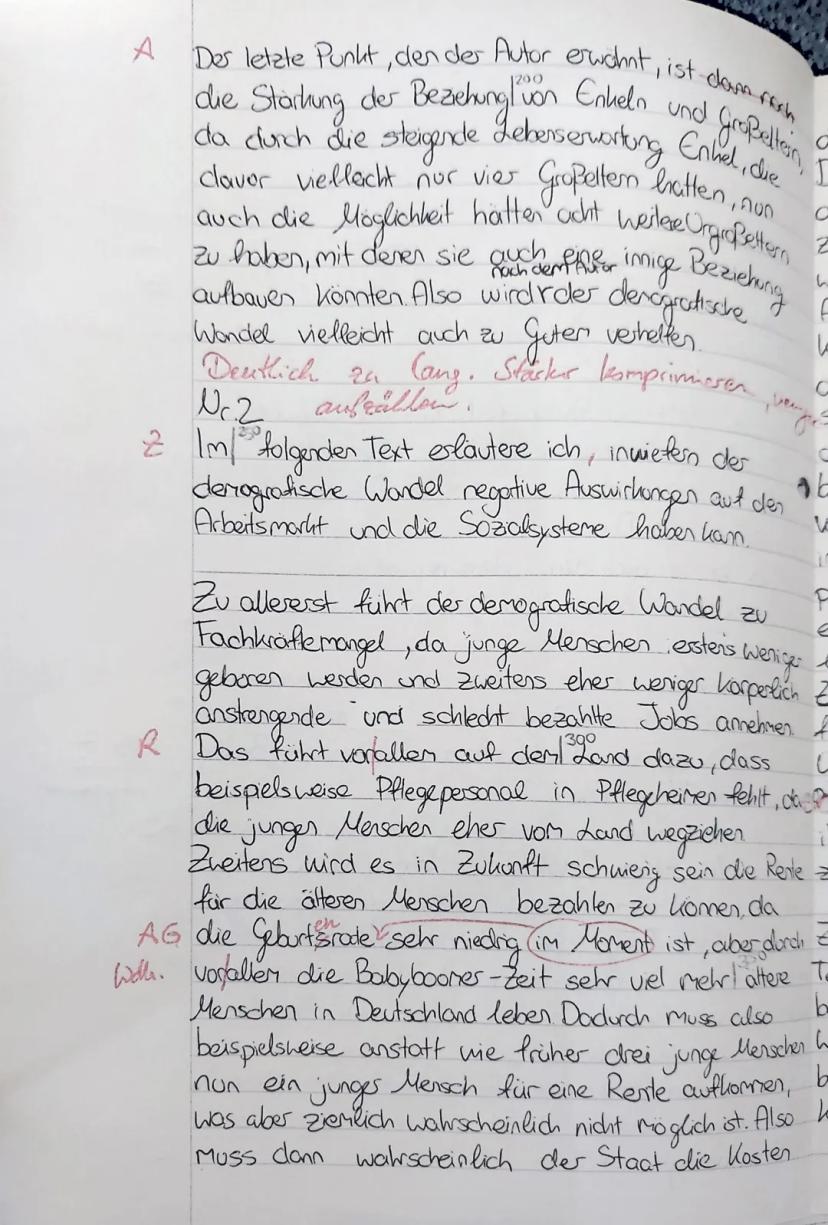 A Der letzte Punkt, den der Autor erwähnt, ist dann noch
die Stärkung der Beziehung |200 von Enkeln und Großeltern,
da durch die steigende Lebenserwartung Enkel, die
davor vielleicht nur vier Großeltern hatten, nun
auch die Möglichkeit hätten acht weitere Urgroßeltern
zu haben, mit denen sie auch eine innige Beziehung
aufbauen könnten. Also wird nach dem Autor der demografische
Wandel vielleicht auch zu Guten verhelfen.
Deutlich zu lang. Stärker komprimieren,
aufzählen.
Nr. 2
Z Im |250 folgenden Text erläutere ich, inwiefern der
demografische Wandel negative Auswirkungen auf den
Arbeitsmarkt und die Sozialsysteme haben kann.
Zu allererst führt der demografische Wandel zu
Fachkräftemangel, da junge Menschen erstens weniger
geboren werden und zweitens eher weniger körperlich
anstrengende und schlecht bezahlte Jobs annehmen.
R Das führt vorallem auf dem |300 Land dazu, dass
beispielsweise Pflegepersonal in Pflegeheimen fehlt, da
die jungen Menschen eher vom Land wegziehen.
Zweitens wird es in Zukunft schwierig sein die Rente
für die älteren Menschen bezahlen zu können, da
AG die Geburtsrate en sehr niedrig im Moment ist, aber durch
Wdh. vorallem die Babyboomer-Zeit sehr viel mehr |350 ältere
Menschen in Deutschland leben. Dadurch muss also
beispielsweise anstatt wie früher drei junge Menschen
nun ein junger Mensch für eine Rente aufkommen,
was aber ziemlich wahrscheinlich nicht möglich ist. Also
muss dann wahrscheinlich der Staat die Kosten